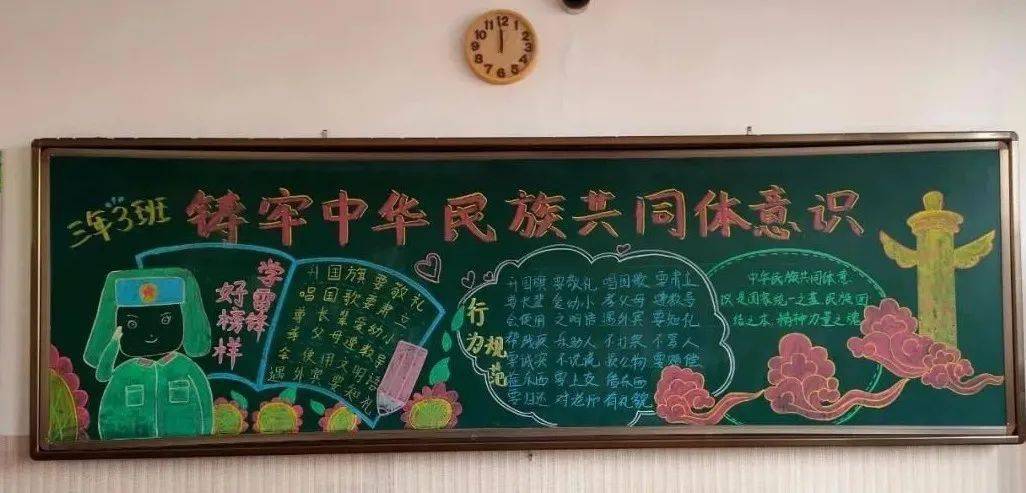 12
11
1
10
2
9
3
8
4
7
5
6
三年3班
铸牢中华民族共同体意识
学雷锋
好榜样
升国旗要敬礼
唱国歌要肃立
尊长辈爱幼小
孝父母遵教导
会使用文明语
遇外宾要知礼
行为规范
升国旗 要敬礼 唱国歌 要肃立
尊长辈 爱幼小 孝父母 遵教导
会使用 文明语 遇外宾 要知礼
帮残疾 乐助人 不打架 不骂人
不说谎 要赔偿
要上交 借东西
要归还 对老师 有礼貌
中华民族共同体意
识是国家统一之基 民族团
结之本 精神力量之魂